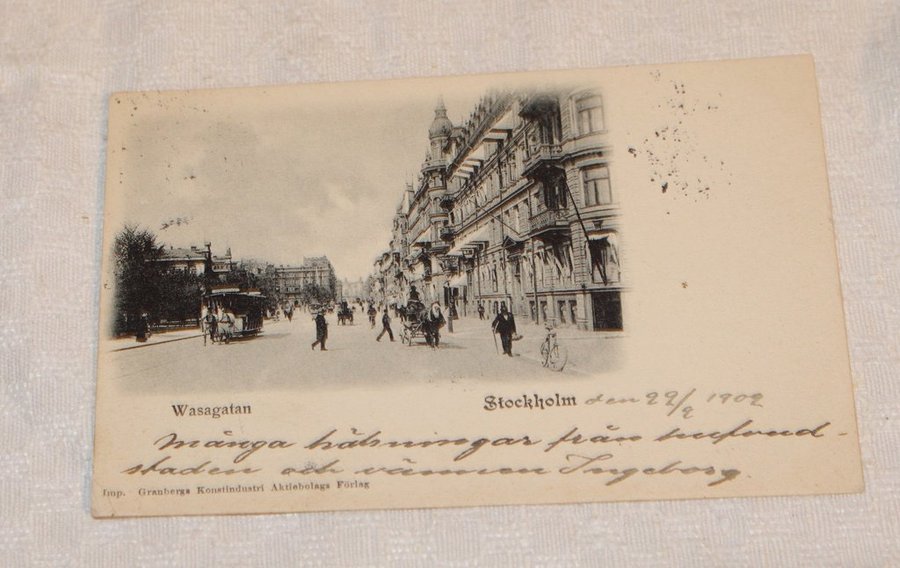 Wasagatan
Stockholm den 29/9 1902
många hälsningar från hufvud-
staden och vännen Ingeborg
Imp. Granbergs Konstindustri Aktiebolags Förlag